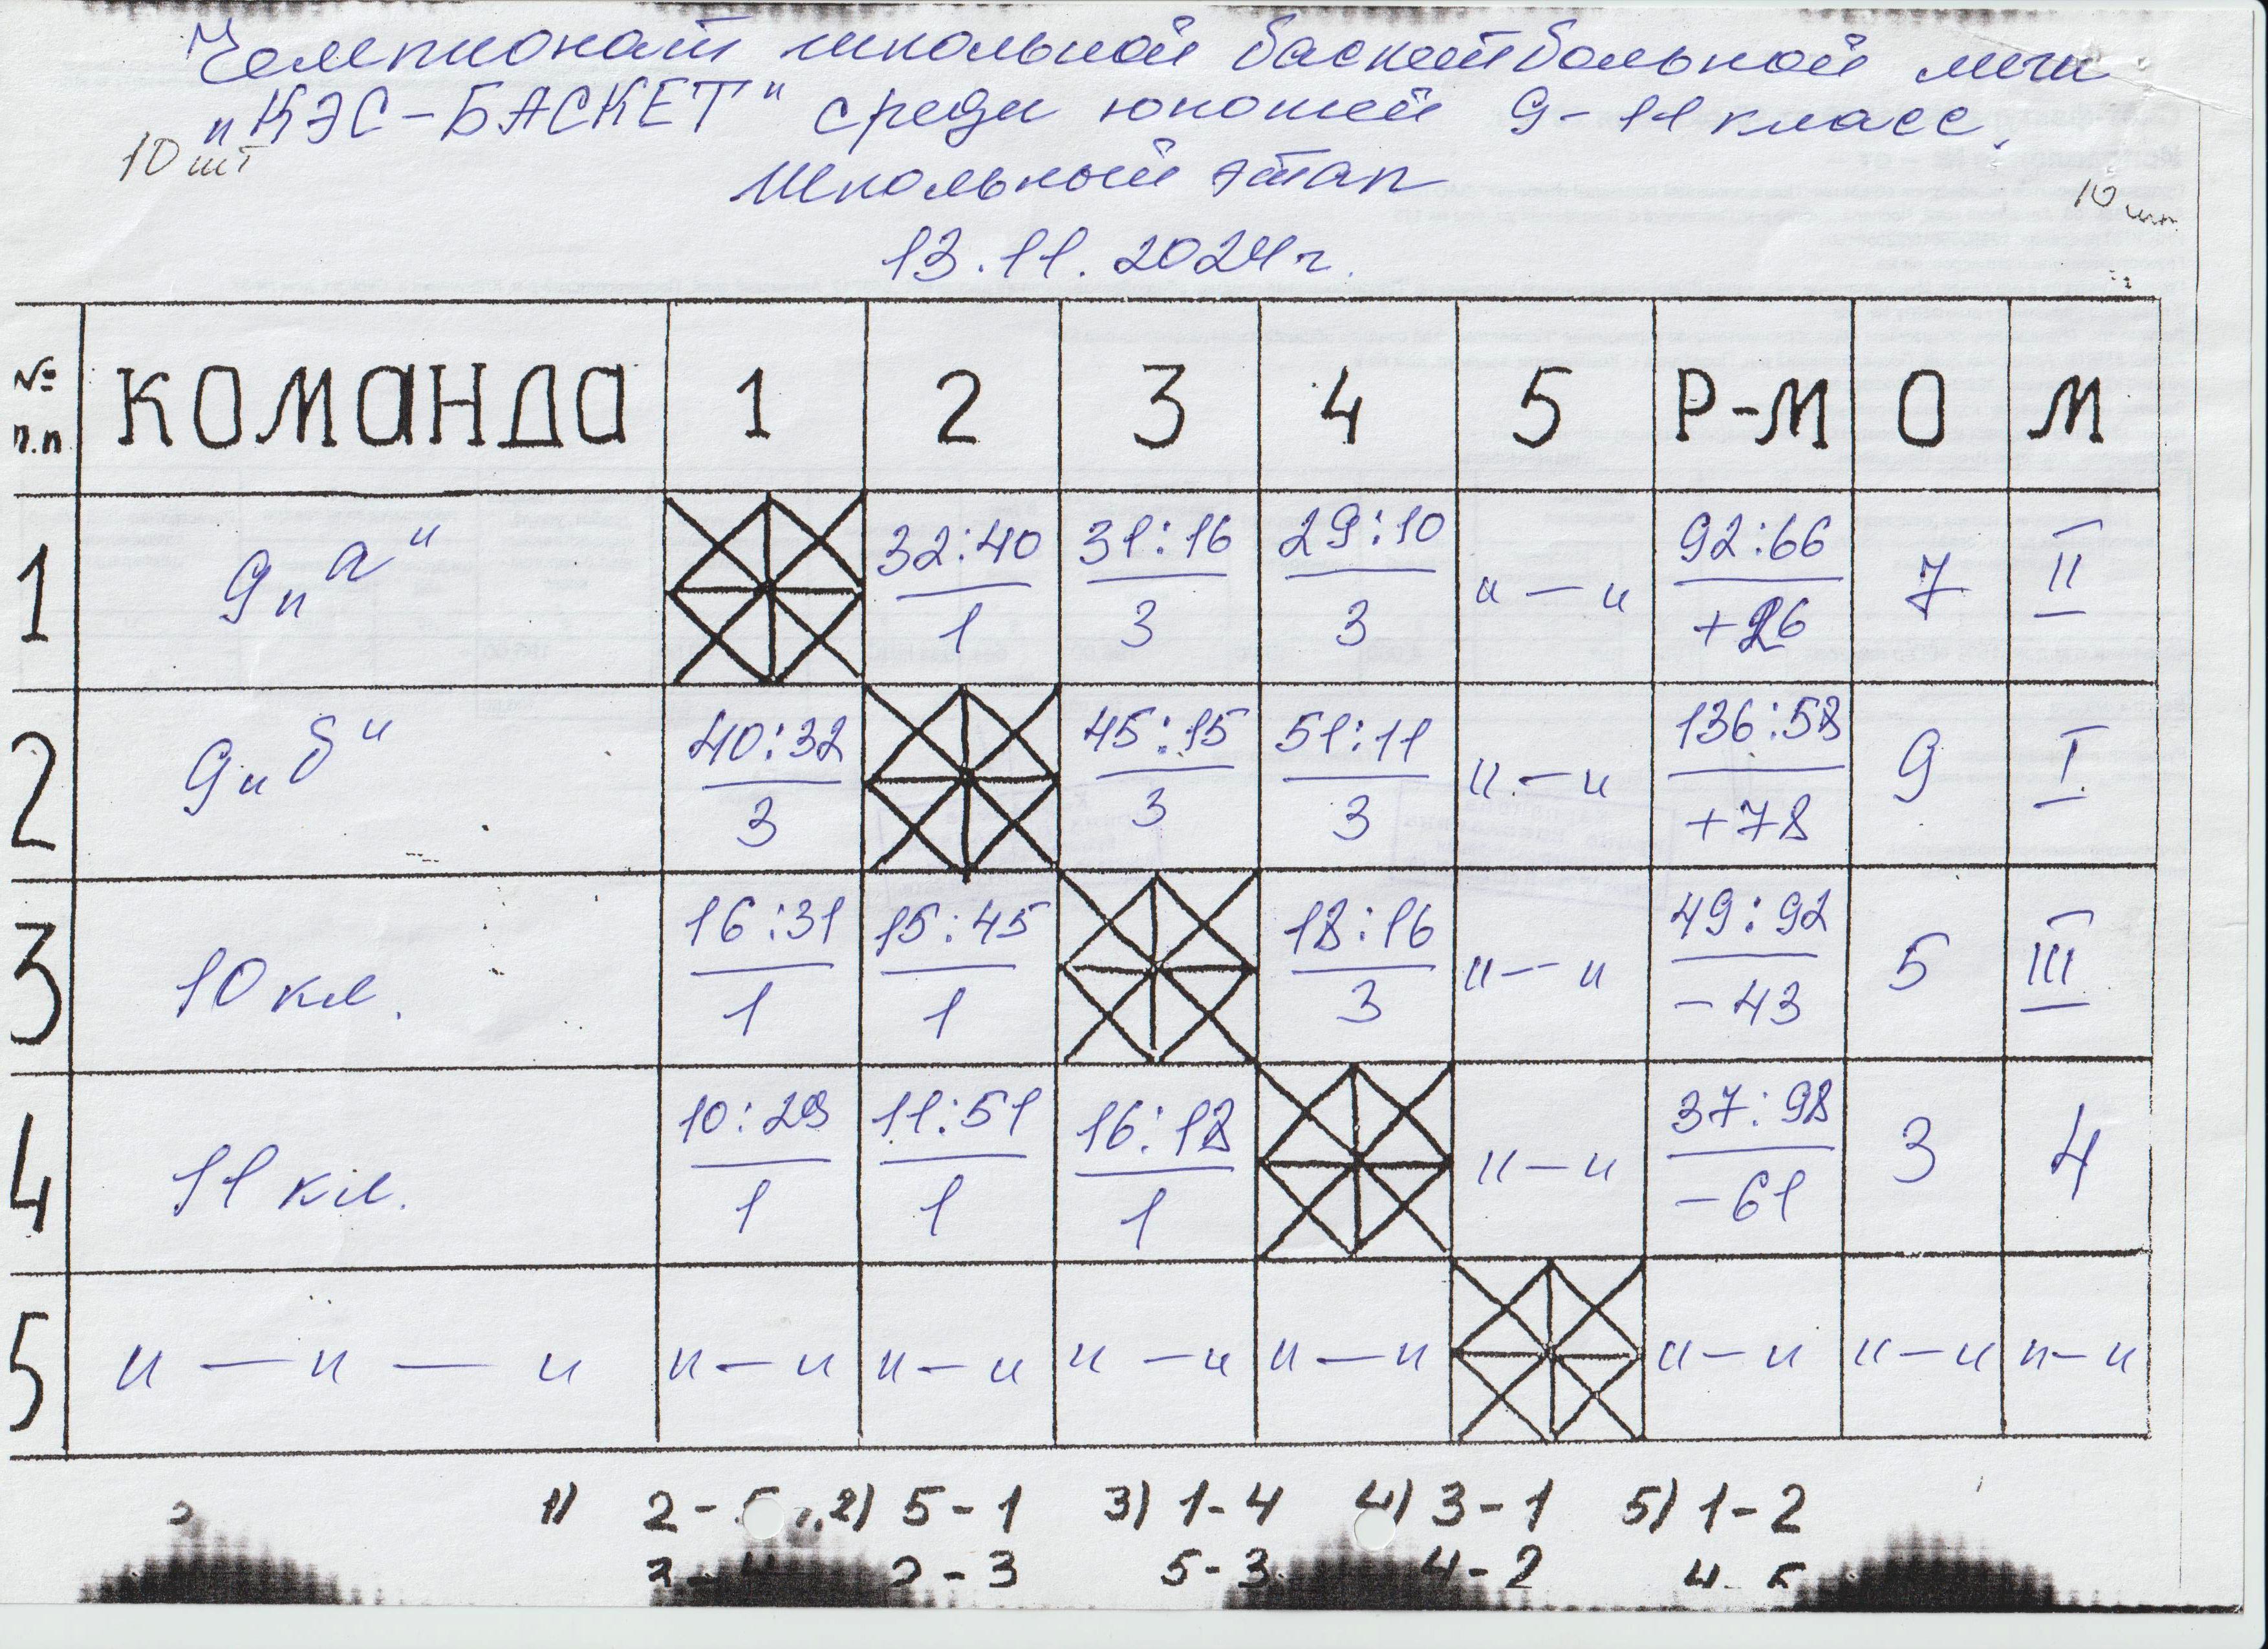 Чемпионат школьной баскетбольной лиги
„КЭС-БАСКЕТ" среди юношей 9-11 класс,
10 шт
Школьный этап
10 шт
13.11.2024г.
№ п.п КОМАНДА 1 2 3 4 5 Р-М О М
1 9„а" 32:40 31:16 29:10 "—" 92:66 7 II
1 3 3 +26
2 9„б" 40:32 45:15 51:11 "—" 136:58 9 I
3 3 3 +78
3 10 кл. 16:31 15:45 18:16 "—" 49:92 5 III
1 1 3 -43
4 11 кл. 10:29 11:51 16:18 "—" 37:98 3 4
1 1 1 -61
5 " — " — " "—" "—" "—" "—" "—" "—" "—"
1) 2- 2) 5-1 3) 1-4 4) 3-1 5) 1-2
2-3 5-3 4-2